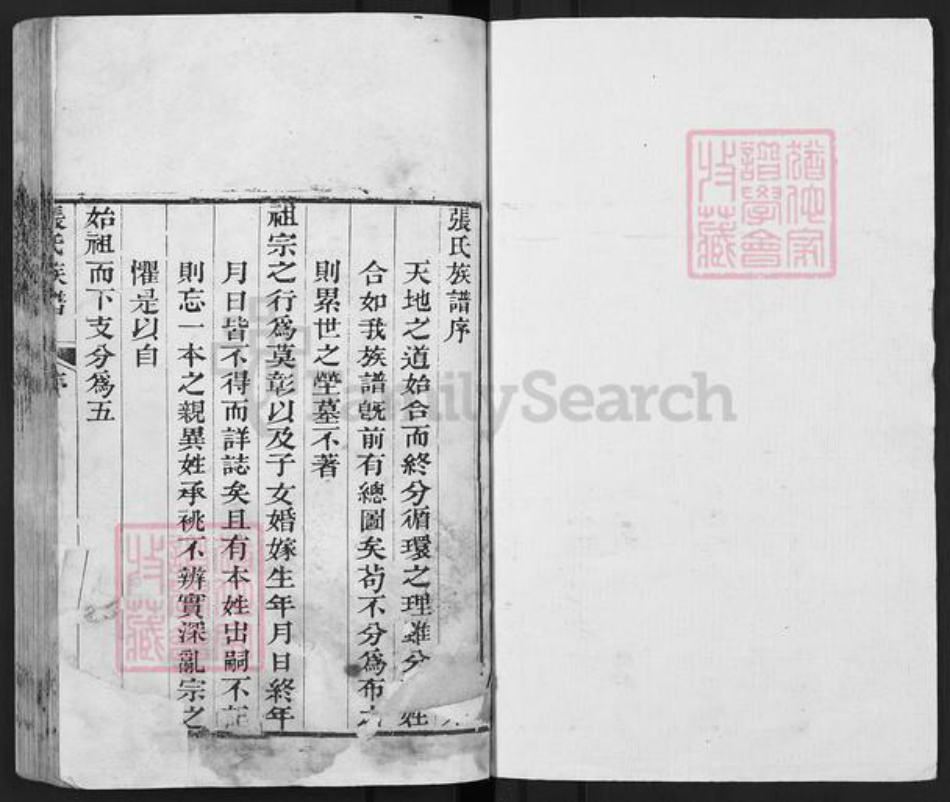 張氏族譜序
天地之道始合而終分循環之理雖分 姓
合如我族譜旣前有總圖矣苟不分爲布
則累世之塋墓不著
祖宗之行爲莫彰以及子女婚嫁生年月日終年
月日皆不得而詳誌矣且有本姓出嗣不
則忘一本之親異姓承祧不辨實深亂宗之
懼是以自
始祖而下支分爲五
張氏族譜
FamilySearch
家
譜學會
收藏
譜學會
收藏